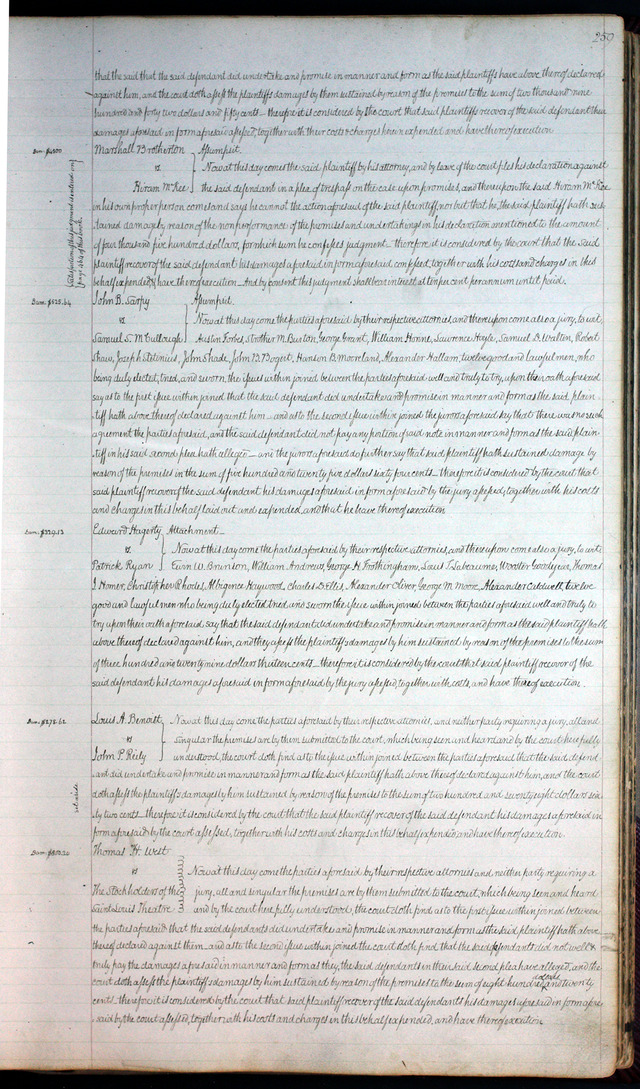 250
that the said that the said defendant did undertake and promise in manner and form as the said plaintiffs have above thereof declared
against him, and the court doth assess the plaintiffs damages by them sustained by reason of the promises to the sum of two thousand nine
hundred and forty two dollars and fifty cents — therefore it is considered by the court that said plaintiffs recover of the said defendant their
damages aforesaid in form aforesaid assessed, together with their costs & charges herein expended and have thereof execution
Dam. $4500
Marshall Brotherton } Assumpsit.
vs } Now at this day comes the said plaintiff by his attorney, and by leave of the court files his declaration against
Hiram McKee } the said defendant in a plea of trespass on the case upon promises, and thereupon the said Hiram McKee
in his own proper person comes and says he cannot the action aforesaid of the said plaintiff nor but that he, the said plaintiff hath sus-
tained damage by reason of the non performance of the promises and undertakings in his declaration mentioned to the amount
of four thousand five hundred dollars, for which sum he confesses judgment — therefore it is considered by the court that the said
plaintiff recover of the said defendant his damages aforesaid in form aforesaid confessed, together with his costs and charges in this
behalf expended & have thereof execution. And by consent this judgment shall bear interest at ten per cent per annum until paid.
Satisfaction of this judgment entered on
page of this book
Dam. $525.64
John B. Sarpy } Assumpsit.
vs } Now at this day come the parties aforesaid by their respective attornies, and thereupon come also a jury, to wit,
Samuel S. McCullough } Austin Forbes, Strother M. Burton, George Grant, William Horine, Lawrence Hoyle, Samuel D. Walton, Robert
Shaw, Joseph Stetinius, John Shade, John B. Bogert, Hanson B. Mooreland, Alexander Hallam, twelve good and lawful men, who
being duly elected, tried, and sworn, the issues within joined between the parties aforesaid well and truly to try, upon their oath aforesaid
say as to the first issue within joined that the said defendant did undertake and promise in manner and form as the said plain-
tiff hath above thereof declared against him — and as to the second issue within joined the jurors aforesaid say that there was no such
agreement the parties aforesaid, and the said defendant did not pay any portion of said note in manner and form as the said plain-
tiff in his said second plea hath alleged — and the jurors aforesaid do further say that said plaintiff hath sustained damage by
reason of the premises in the sum of five hundred and twenty five dollars sixty four cents — therefore it is considered by the court that
said plaintiff recover of the said defendant his damages aforesaid in form aforesaid by the jury assessed, together with his costs
and charges in this behalf laid out and expended, and that he have thereof execution
Dam. $329.13
Edward Hagerty } Attachment —
vs } Now at this day come the parties aforesaid by their respective attornies, and thereupon come also a jury, to wit:
Patrick Ryan } W. Brunson, William Andrews, George H. Frothingham, Louis T. Labeaume, Wooster Goodyear, Thomas
J Homer, Christopher Rhodes, Albigence Haywood, Charles D. Ellis, Alexander Oliver, George M. Moore, Alexander Caldwell, twelve
good and lawful men who being duly elected, tried, and sworn the issue within joined between the parties aforesaid well and truly to
try upon their oath aforesaid, say that the said defendant did undertake and promise in manner and form as the said plaintiff hath
above thereof declared against him, and they assess the plaintiffs damages by him sustained by reason of the premises to the sum
of three hundred and twenty nine dollars thirteen cents — therefore it is considered by the court that said plaintiff recover of the
said defendant his damages aforesaid in form aforesaid by the jury assessed, together with costs, and have thereof execution.
Dam. $278.62
Louis A. Benoist } Now at this day come the parties aforesaid by their respective attornies, and neither party requiring a jury, all and
vs } singular the premises are by them submitted to the court, which being seen and heard and by the court here fully
John P. Reily } understood, the court doth find as to the issue within joined between the parties aforesaid that the said defend-
ant did undertake and promise in manner and form as the said plaintiff hath above thereof declared against him, and the court
doth assess the plaintiffs damages by him sustained by reason of the premises to the sum of two hundred and seventy eight dollars six-
ty two cents — therefore it is considered by the court that the said plaintiff recover of the said defendant his damages aforesaid in
form aforesaid by the court assessed, together with his costs and charges in this behalf expended, and have thereof execution.
set aside
Thomas H. West
vs } Now at this day come the parties aforesaid by their respective attornies and neither party requiring a
The Stockholders of the } jury, all and singular the premises are by them submitted to the court, which being seen and heard
Saint Louis Theatre } and by the court here fully understood, the court doth find as to the first issue within joined between
the parties aforesaid that the said defendants did undertake and promise in manner and form as the said plaintiff hath above
thereof declared against them, and as to the second issue within joined the court doth find, that the said defendants did not well &
truly pay the damages aforesaid in manner and form as they, the said defendants in their said second plea have alleged, and the
court doth assess the plaintiffs damages by him sustained by reason of the promises to the sum of eight hundred dollars and twenty
cents, therefore it is considered by the court that said plaintiff recover of the said defendants his damages aforesaid in form afore-
said by the court assessed, together with his costs and charges in this behalf expended, and have thereof execution